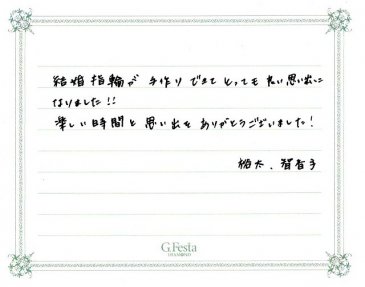 結婚指輪が手作りできてとっても良い思い出に
なりました!!
楽しい時間と思い出をありがとうございました!
裕太、智香子
G.Festa
DIAMOND